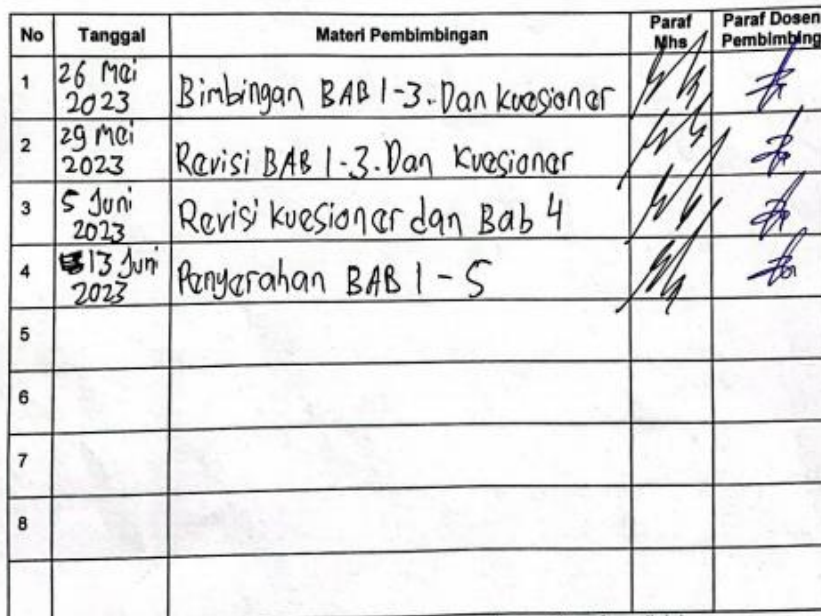 No Tanggal Materi Pembimbingan Paraf Mhs Paraf Dosen Pembimbing
1 26 Mei 2023 Bimbingan BAB 1-3. Dan kuesioner
2 29 Mei 2023 Revisi BAB 1-3. Dan Kuesioner
3 5 Juni 2023 Revisi kuesioner dan Bab 4
4 13 Juni 2023 Penyerahan BAB 1 - 5
5
6
7
8